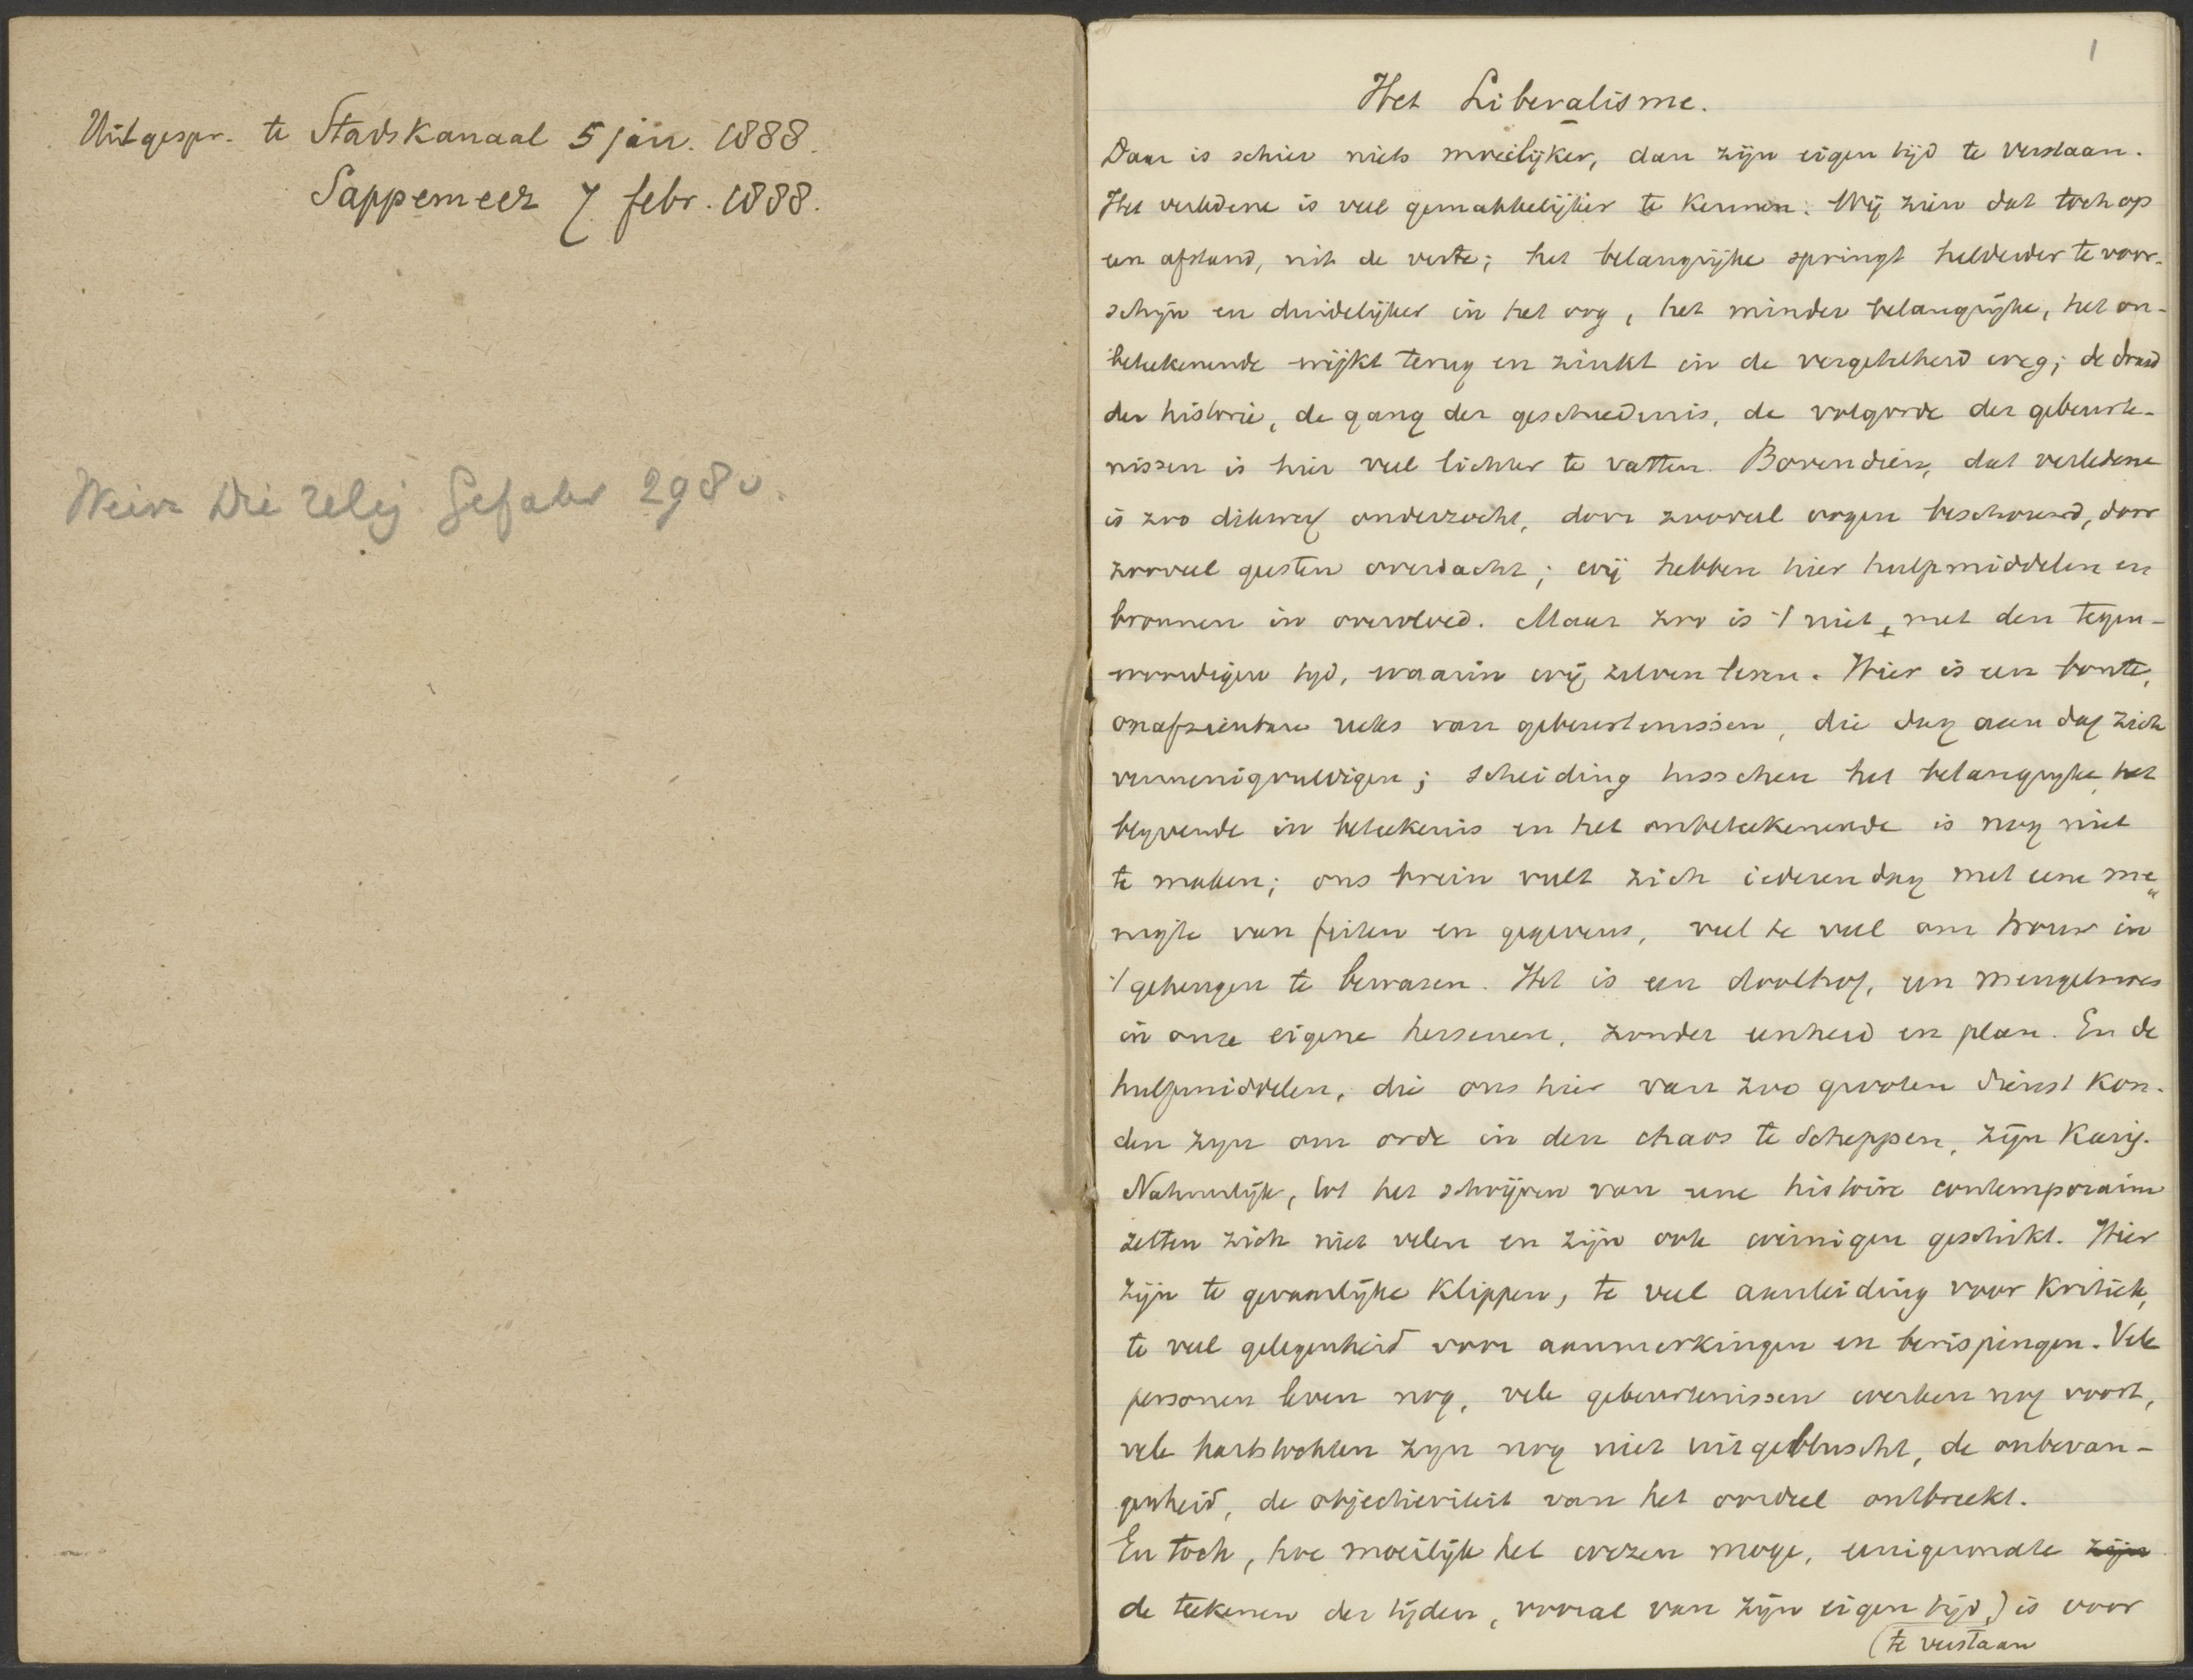 Uitgespr. te Stadskanaal 5 jan. 1888.
Sappemeer 7 febr. 1888.
Die relig. 298 v.
1
Het Liberalisme.
Daar is schier niets moeilijker, dan zijn eigen tijd te verstaan.
Het verledene is veel gemakkelijker te kennen. Wij zien dat toch op
een afstand, uit de verte; het belangrijke springt helderder te voor-
schijn en duidelijker in het oog, het minder belangrijke, het on-
beteekenende wijkt terug en zinkt in de vergetelheid weg; de draad
der historie, de gang der geschiedenis, de volgorde der gebeurte-
nissen is hier veel lichter te vatten. Bovendien, dat verledene
is zoo dikwerf onderzocht, door zooveel oogen beschouwd, door
zooveel geesten overdacht; wij hebben hier hulpmiddelen en
bronnen in overvloed. Maar zoo is 't niet, met den tegen-
woordigen tijd, waarin wij zelven leven. Hier is een bonte,
onafzienbare reeks van gebeurtenissen, die dag aan dag zich
vermenigvuldigen; scheiding tusschen het belangrijke, het
blijvende in beteekenis en het onbeteekenende is nog niet
te maken; ons brein vult zich iederen dag met eene me„
nigte van feiten en gegevens, veel te veel om trouw in
't geheugen te bewaren. Het is een doolhof, een mengelmoes
in onze eigene hersenen, zonder eenheid en plan. En de
hulpmiddelen, die ons hier van zoo grooten dienst kon-
den zijn om orde in den chaos te scheppen, zijn karig.
Natuurlijk, tot het schrijven van eene histoire contemporaine
zetten zich niet velen en zijn ook weinigen geschikt. Hier
zijn te gevaarlijke klippen, te veel aanleiding voor kritiek,
te veel gelegenheid voor aanmerkingen en berispingen. Vele
personen leven nog, vele gebeurtenissen werken nog voort,
vele hartstochten zijn nog niet uitgebluscht, de onbevan-
genheid, de objectiviteit van het oordeel ontbreekt.
En toch, hoe moeilijk het wezen moge, eenigermate zijn
de teekenen der tijden, vooral van zijn eigen tijd,) is voor
(te verstaan